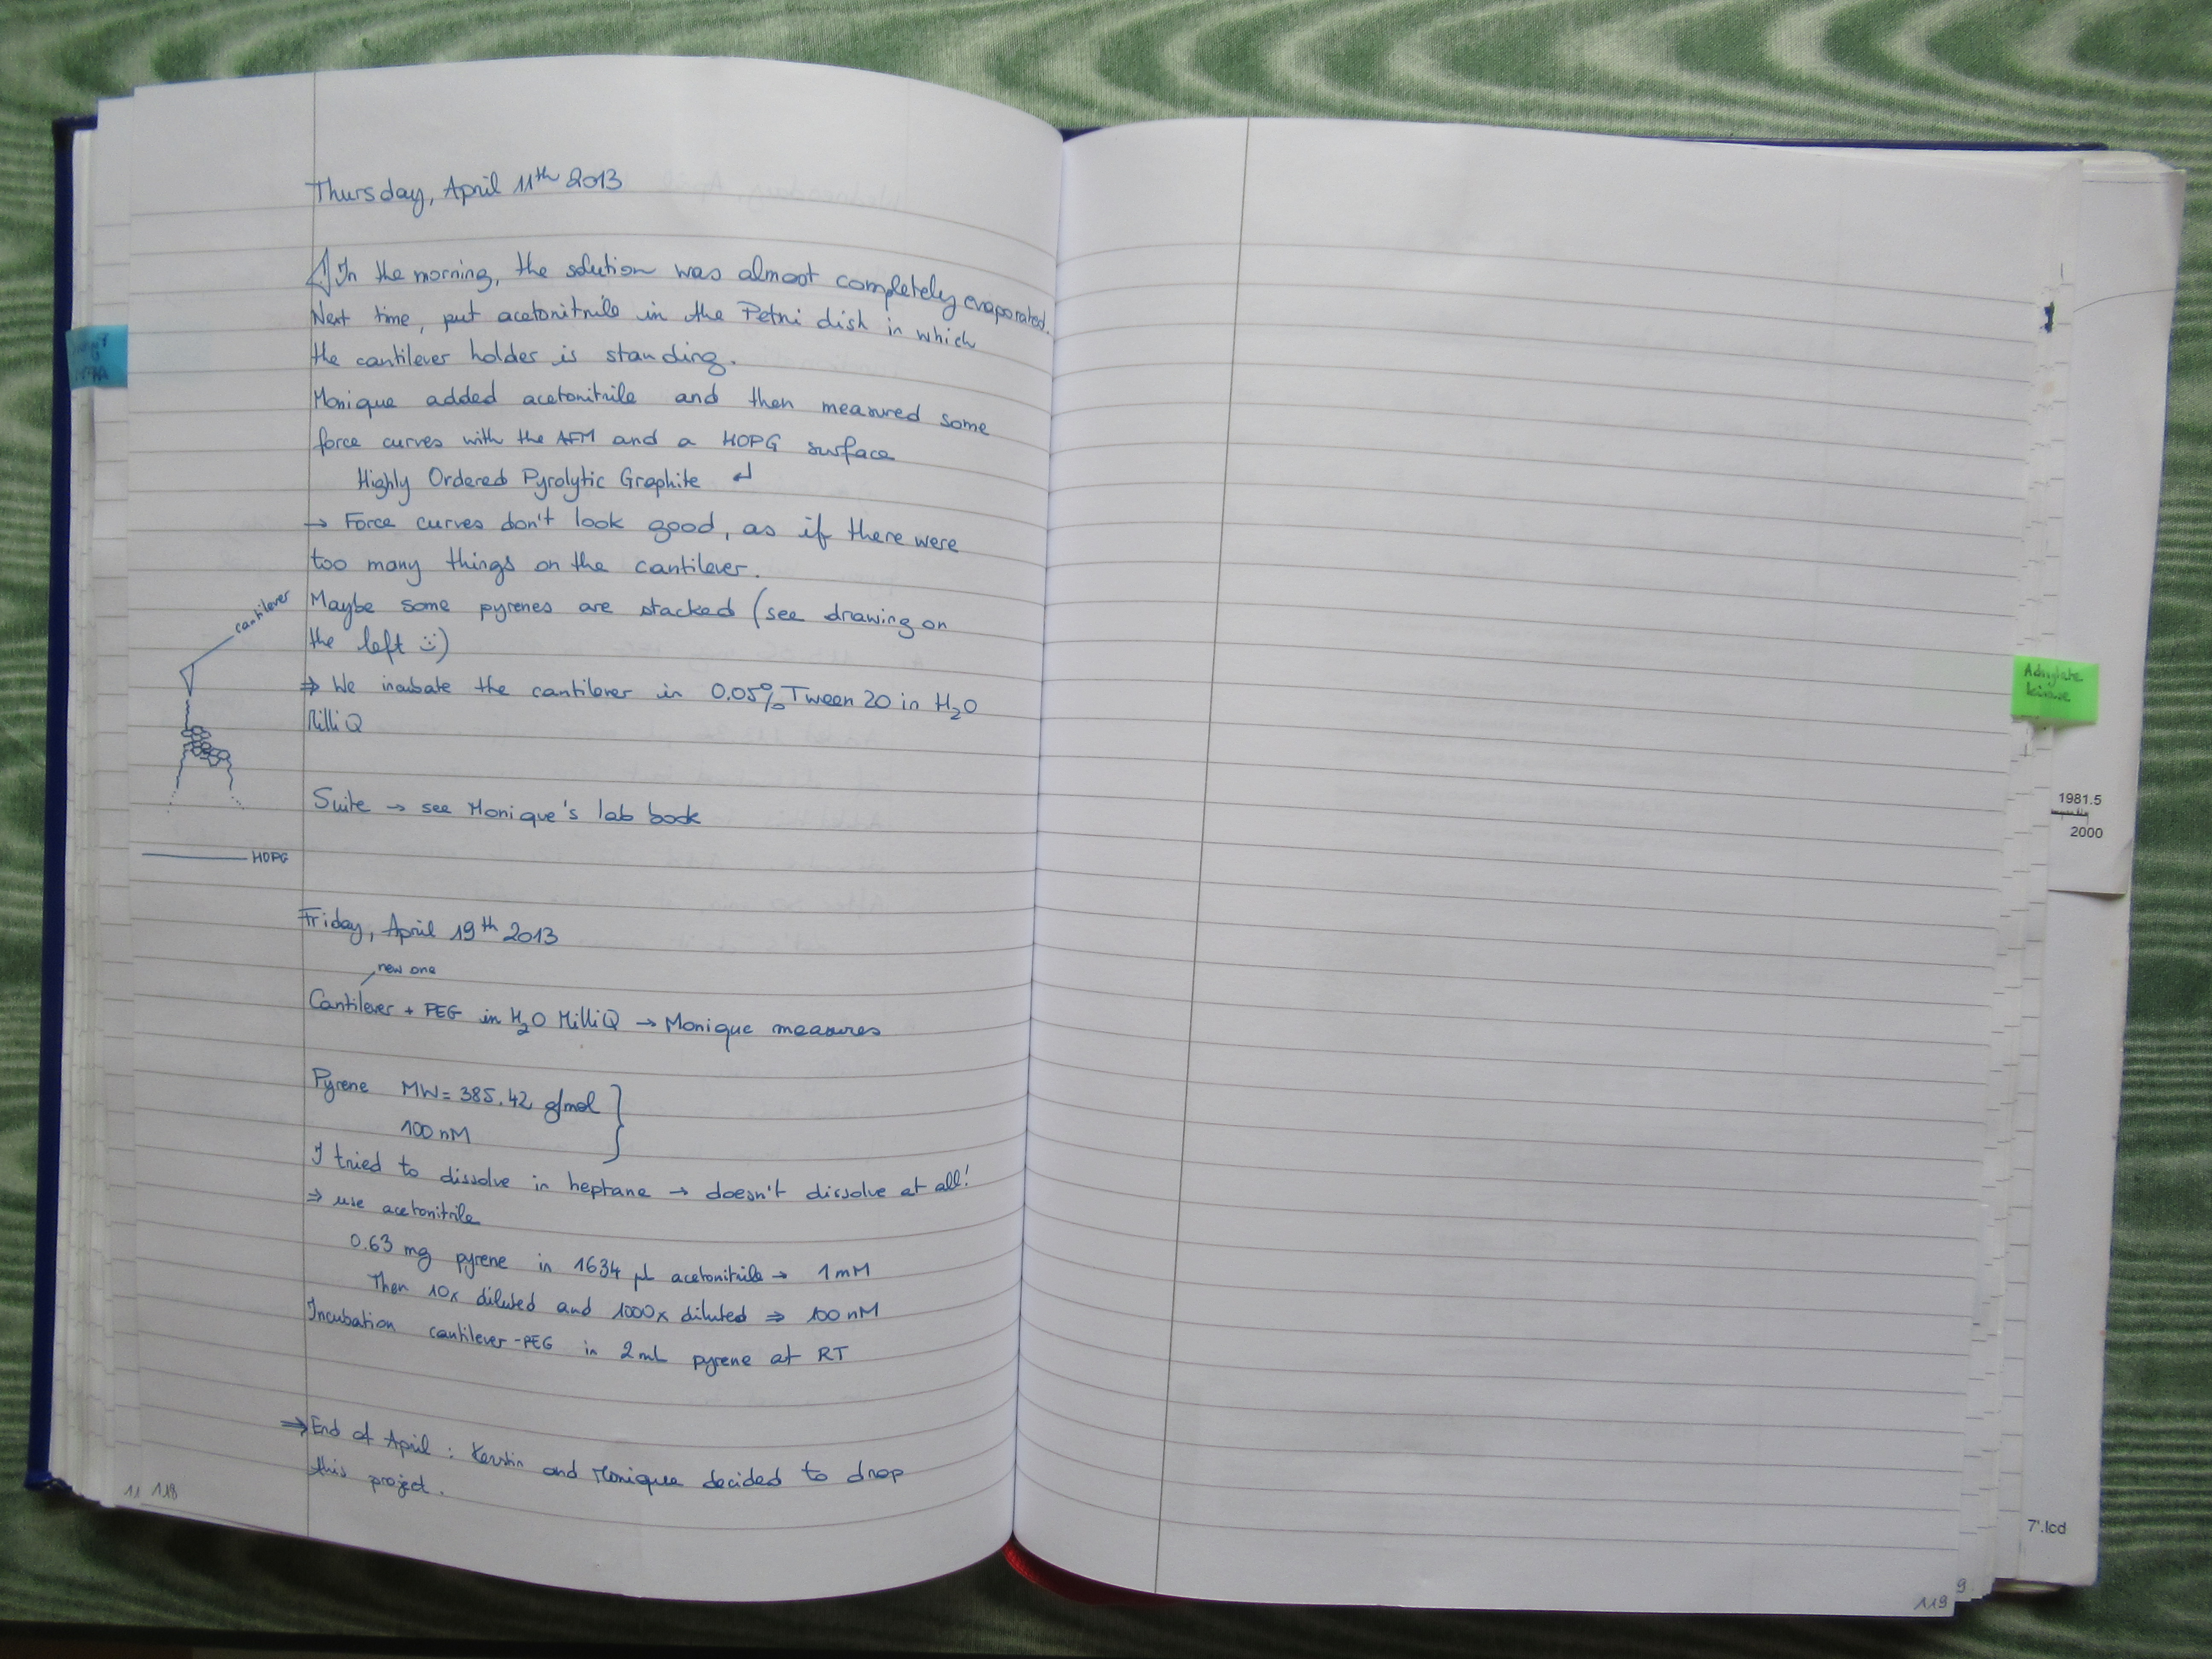 Thursday, April 11th 2013
⚠ In the morning, the solution was almost completely evaporated.
Next time, put acetonitrile in the Petri dish in which
the cantilever holder is standing.
Monique added acetonitrile and then measured some
force curves with the AFM and a HOPG surface
Highly Ordered Pyrolytic Graphite ↲
→ Force curves don't look good, as if there were
too many things on the cantilever.
Maybe some pyrenes are stacked (see drawing on
the left :))
⇒ We incubate the cantilever in 0.05% Tween 20 in H2O
MilliQ
cantilever
Suite → see Monique's lab book
HOPG
Friday, April 19th 2013
new one
Cantilever + PEG in H2O MilliQ → Monique measures
Pyrene MW = 385.42 g/mol }
100 nM
I tried to dissolve in heptane → doesn't dissolve at all!
⇒ use acetonitrile
0.63 mg pyrene in 1634 µL acetonitrile → 1 mM
Then 10x diluted and 1000x diluted ⇒ 100 nM
Incubation cantilever-PEG in 2 mL pyrene at RT
⇒ End of April : Kerstin and Monique decided to drop
this project.
11 118
Adenylate
kinase
1981.5
2000
7'.lcd
9
119